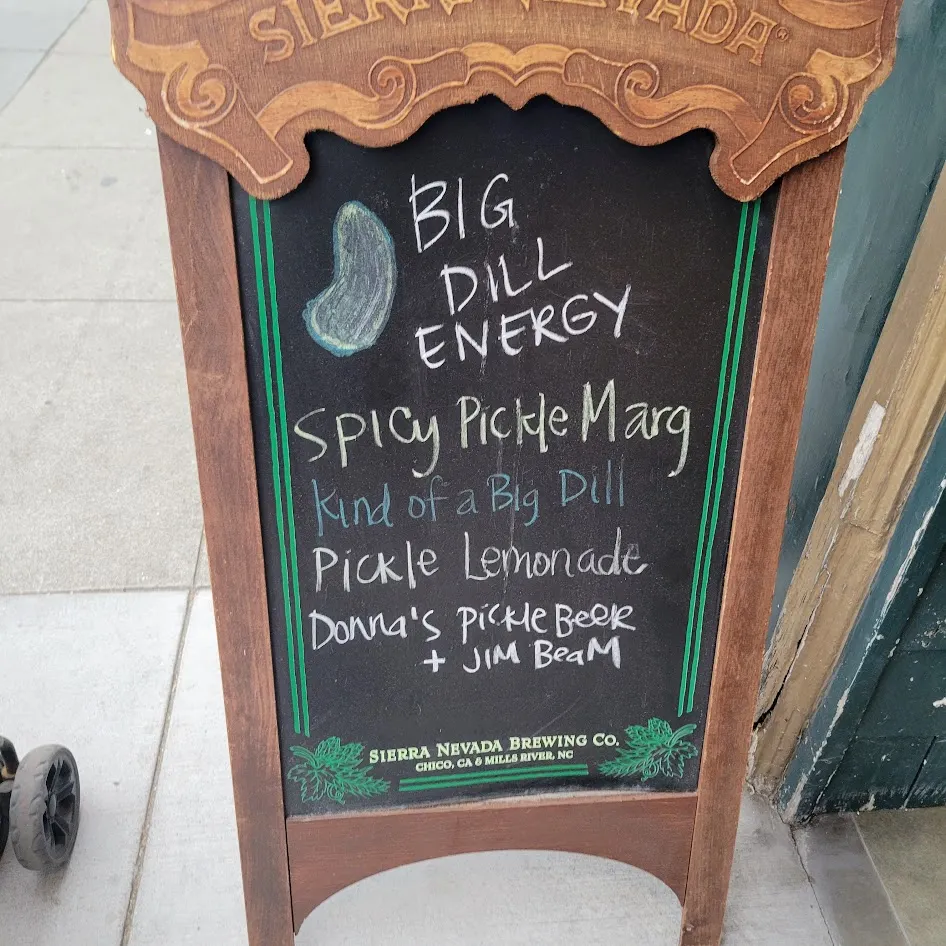 SIERRA NEVADA®
BIG
DILL
ENERGY
Spicy Pickle Marg
Kind of a Big Dill
Pickle Lemonade
Donna's Pickle Beer
+ JIM BeaM
SIERRA NEVADA BREWING CO.
CHICO, CA & MILLS RIVER, NC